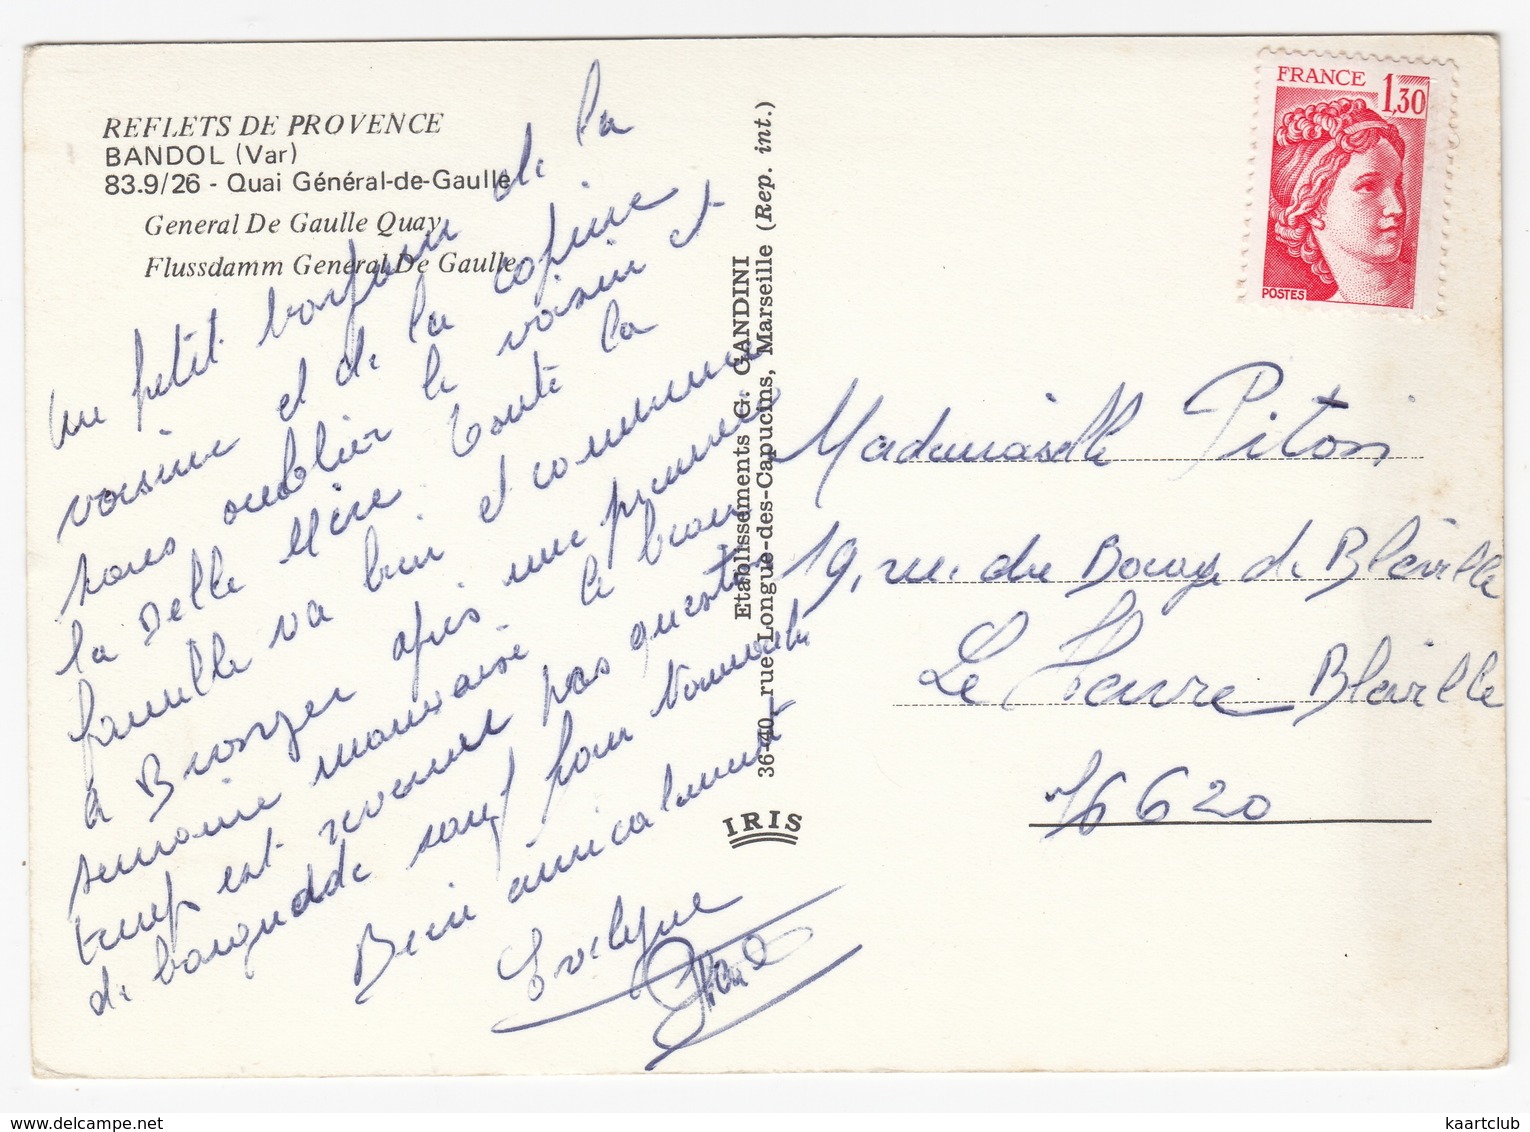 REFLETS DE PROVENCE
BANDOL (Var)
83.9/26 - Quai Général-de-Gaulle
General De Gaulle Quay
Flussdamm General De Gaulle
Un petit bonjour de la
voisine et de la copine
sans oublier le voisin et
la belle Mère toute la
famille va bien et commence
à Bronzer après une première
semaine mauvaise le beau
temps est revenue pas question
de baignade sauf pour
Bien amicalement
Evelyne
Etablissements G. GANDINI
36-40, rue Longue-des-Capucins, Marseille (Rep. int.)
IRIS
FRANCE 1,30
POSTES
Mademoiselle Piton
19, rue du Bocage de Bléville
Le Havre Bléville
76620
kaartclub